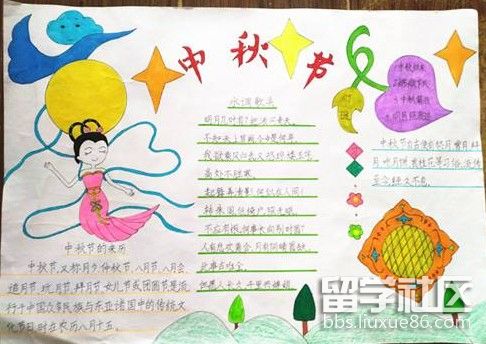 中秋节
水调歌头
明月几时有？把酒问青天。
不知天上宫阙，今夕是何年。
我欲乘风归去，又恐琼楼玉宇，
高处不胜寒。
起舞弄清影，何似在人间！
转朱阁，低绮户，照无眠。
不应有恨，何事长向别时圆？
人有悲欢离合，月有阴晴圆缺，
此事古难全。
但愿人长久，千里共婵娟。
中秋节的来历
中秋节，又称月夕、仲秋节、八月节、八月会、
追月节、玩月节、拜月节、女儿节或团圆节，是流
行于中国众多民族与东亚诸国中的传统文
化节日，时在农历八月十五。
中秋节自古便有祭月、赏月、拜
月、吃月饼、赏桂花等习俗，流传
至今，经久不息。
留学社区
bbs.liuxue86.com